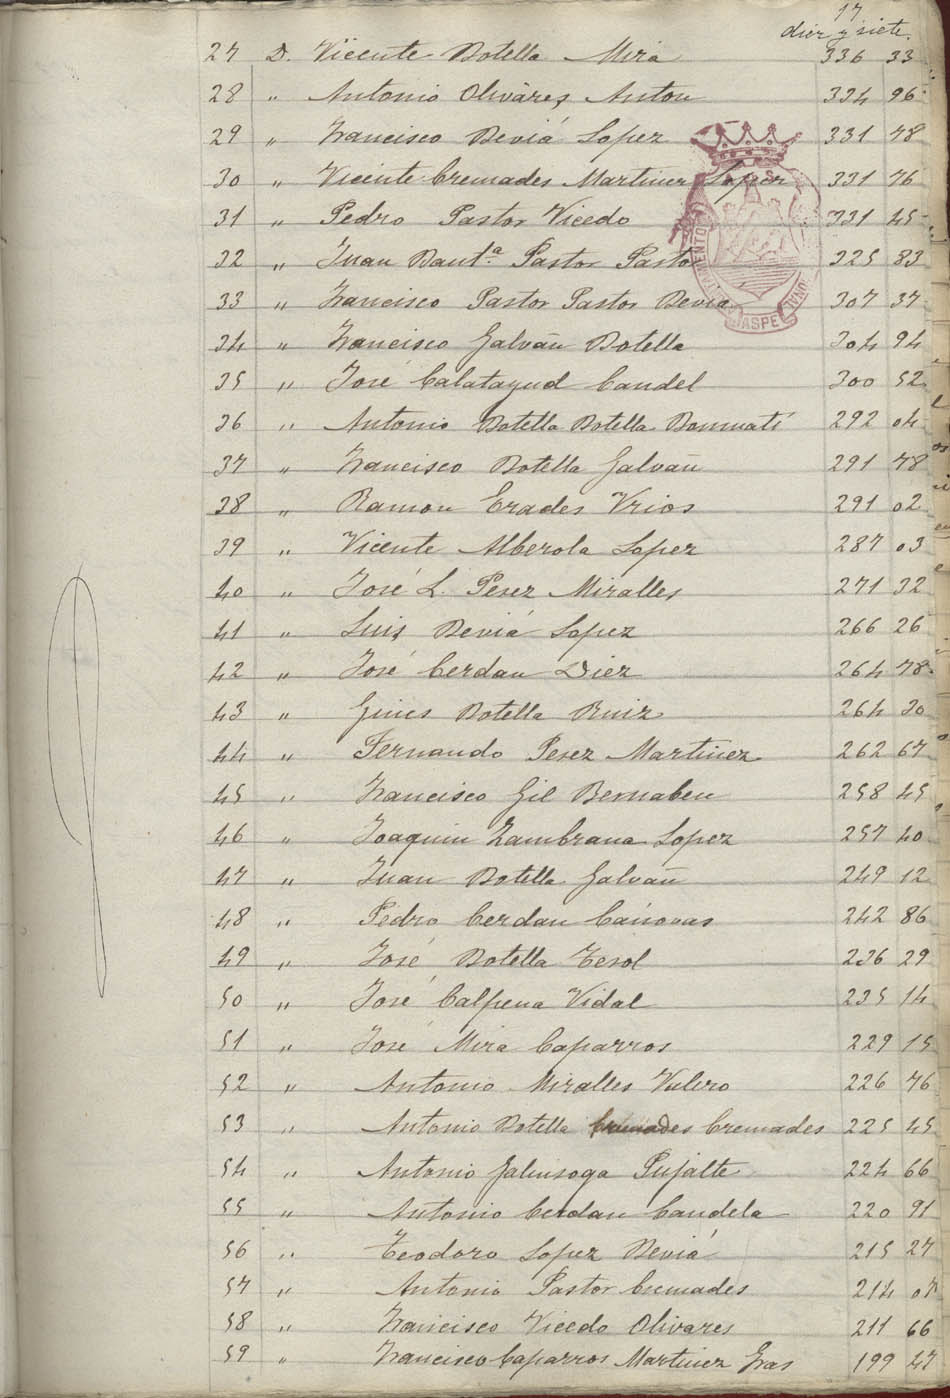 17
diez y siete.
27 D. Vicente Botella Mira 336 33
28 " Antonio Olivares Anton 334 96
29 " Francisco Deviá Lopez 331 78
30 " Vicente Cremades Martinez Lopez 331 76
31 " Pedro Pastor Vicedo 331 45
32 " Juan Baut.ª Pastor Pastor 325 83
33 " Francisco Pastor Pastor Deviá 307 37
34 " Francisco Galvañ Botella 304 94
35 " José Calatayud Candel 300 52
36 " Antonio Botella Botella Bonmatí 292 04
37 " Francisco Botella Galvañ 291 78
38 " Ramon Erades Vrios 291 02
39 " Vicente Alberola Lopez 287 03
40 " José L. Perez Miralles 271 32
41 " Luis Deviá Lopez 266 26
42 " José Cerdan Diez 264 78
43 " Gines Botella Ruiz 264 30
44 " Fernando Perez Martinez 262 67
45 " Francisco Gil Bernabeu 258 45
46 " Joaquin Zambrana Lopez 257 40
47 " Juan Botella Galvañ 249 12
48 " Pedro Cerdan Cánovas 242 86
49 " José Botella Terol 236 29
50 " José Calpena Vidal 235 14
51 " José Mira Caparros 229 15
52 " Antonio Miralles Valero 226 76
53 " Antonio Botella Cremades Cremades 225 45
54 " Antonio Galinsoga Pujalte 224 66
55 " Antonio Cerdan Candela 220 91
56 " Teodoro Lopez Deviá 215 27
57 " Antonio Pastor Cremades 214 07
58 " Francisco Vicedo Olivares 211 66
59 " Francisco Caparros Martinez Gras 199 47